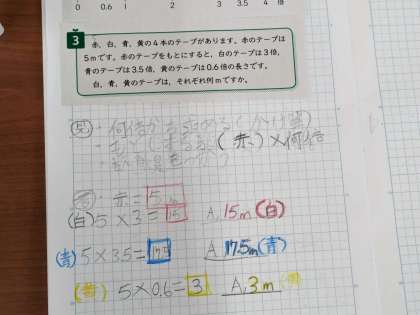 0 0.6 1 2 3 3.5 4 倍
3 赤、白、青、黄の4本のテープがあります。赤のテープは
5mです。赤のテープをもとにすると、白のテープは3倍、
青のテープは3.5倍、黄のテープは0.6倍の長さです。
白、青、黄のテープは、それぞれ何mですか。
・何倍かを求める(かけ算)
(赤)×何倍
・赤=5
(白) 5×3=15 A.15m(白)
(青) 5×3.5=17.5 A 17.5m(青)
(黄) 5×0.6=3 A.3m(黄)